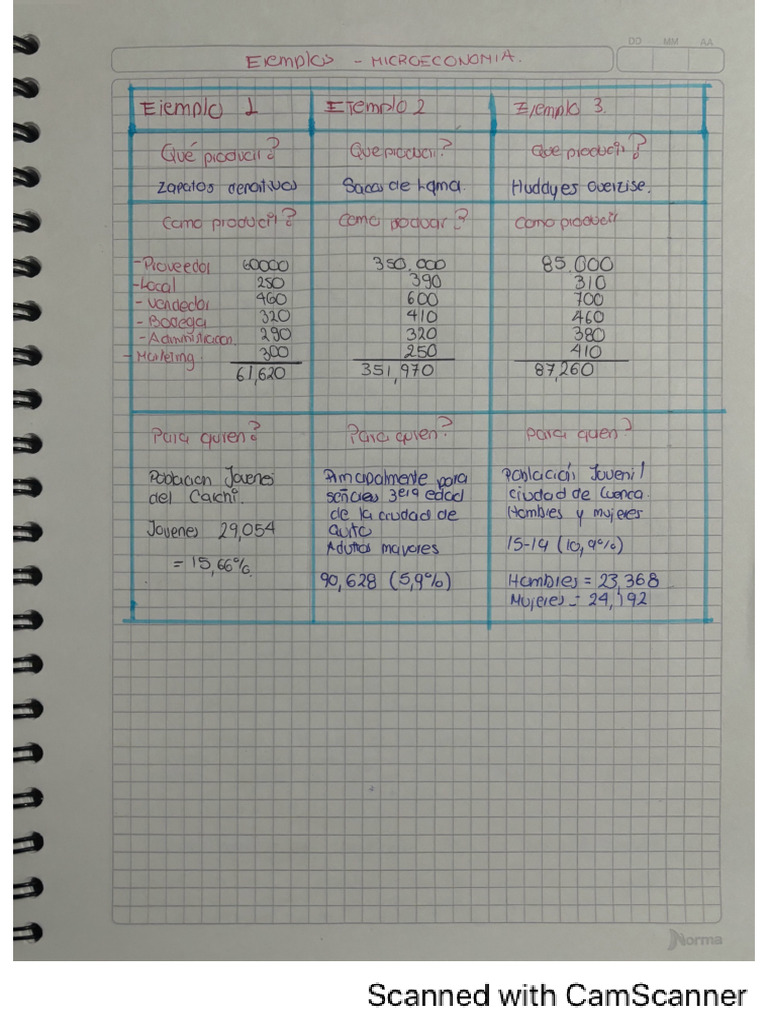 DD MM AA
Ejemplos - MICROECONOMIA.
Ejemplo 1 Ejemplo 2 Ejemplo 3.
Qué producir? Que producir? Que producir?
Zapatos deportivos Sacos de lana. Huddyes overzise.
Como producir? Como producir? Como producir
- Proveedor 60000 350.000 85.000
- Local 250 390 310
- Vendedor 460 600 700
- Bodega 320 410 460
- Administracion. 290 320 380
- Marketing 300 250 410
61,620 351,970 87,260
Para quien? Para quien? Para quien?
Poblacion Jovenes
del Carchi.
Jovenes 29,054
= 15,66%.
Principalmente para
señoras 3era edad
de la ciudad de
quito
Adultos mayores
90,628 (5,9%)
Población Juvenil
ciudad de Cuenca.
Hombres y mujeres
15-19 (10,9%)
Hombres = 23,368
Mujeres = 24,192
Norma
Scanned with CamScanner